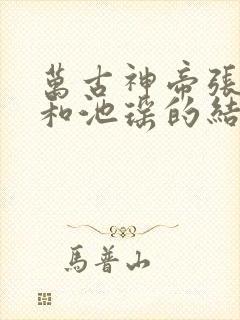 萬古神帝張
和池瑤的結
馬普山